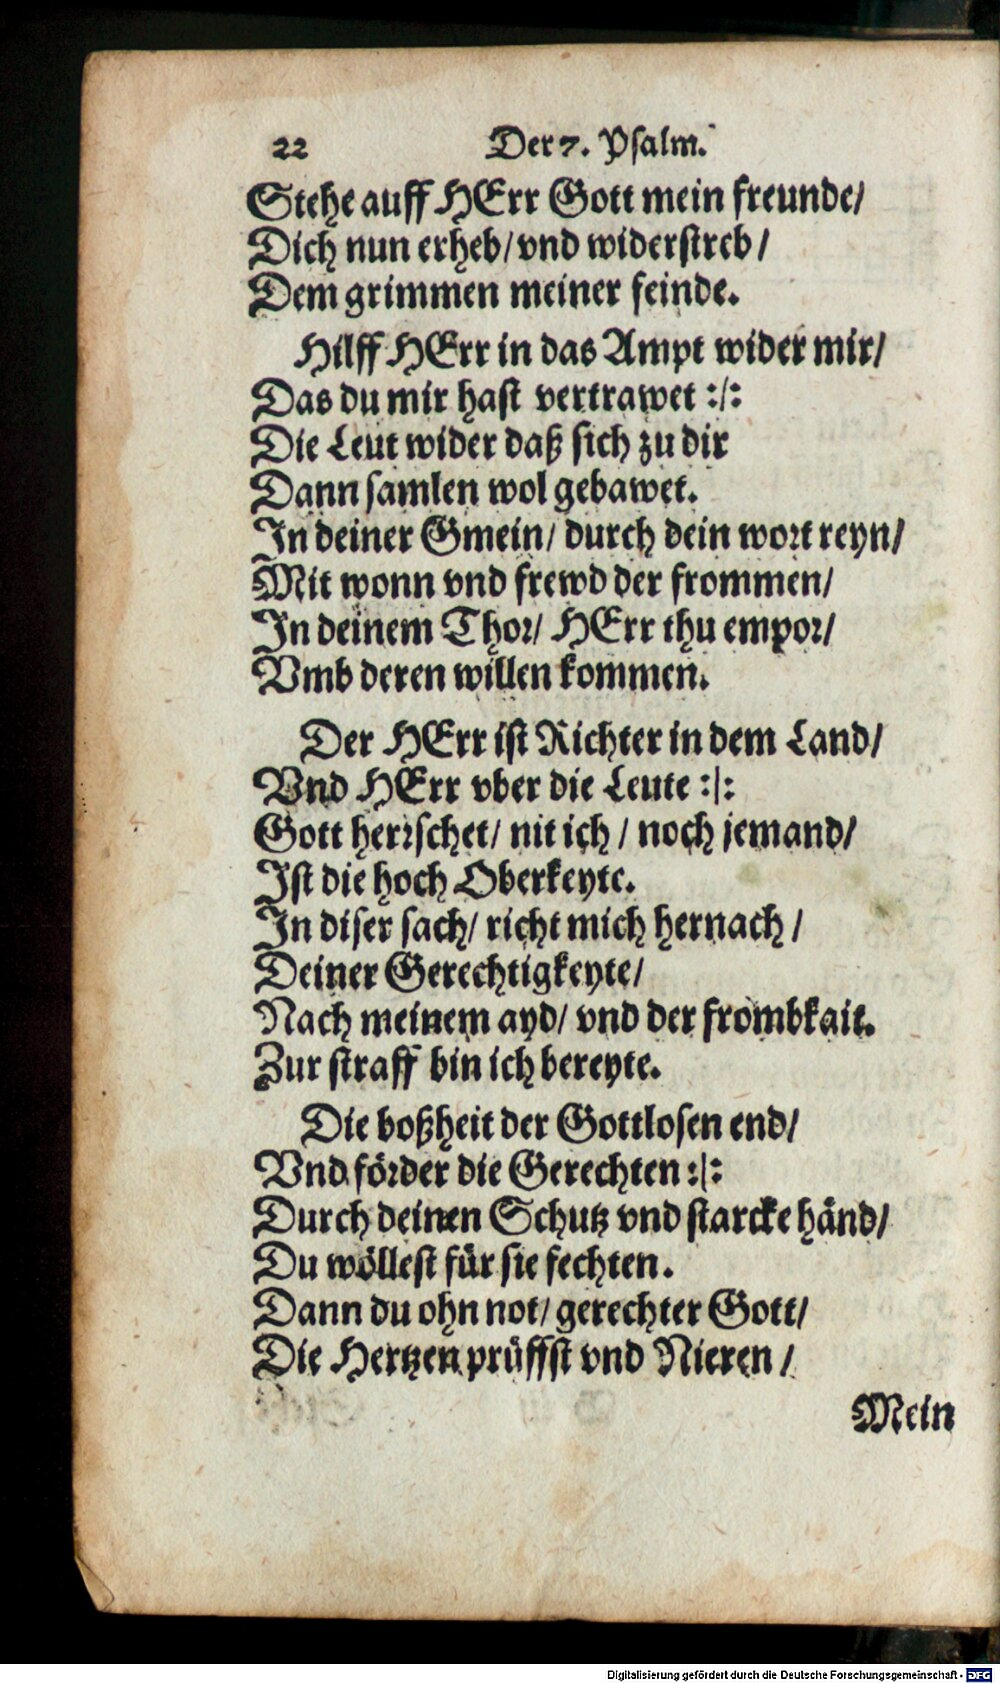 22 Der 7. Psalm.
Stehe auff HErr Gott mein freunde/
Dich nun erheb/ vnd widerstreb/
Dem grimmen meiner feinde.
Hilff HErr in das Ampt wider mir/
Das du mir hast vertrawet :/:
Die Leut wider daß sich zu dir
Dann samlen wol gebawet.
In deiner Gmein/ durch dein wort reyn/
Mit wonn vnd frewd der frommen/
In deinem Thor/ HErr thu empor/
Vmb deren willen kommen.
Der HErr ist Richter in dem Land/
Vnd HErr vber die Leute :/:
Gott herrschet/ nit ich / noch jemand/
Ist die hoch Oberkeyte.
In diser sach/ richt mich hernach /
Deiner Gerechtigkeyte/
Nach meinem ayd/ vnd der frombkait.
Zur straff bin ich bereyte.
Die boßheit der Gottlosen end/
Vnd förder die Gerechten :/:
Durch deinen Schutz vnd starcke händ/
Du wöllest für sie fechten.
Dann du ohn not/ gerechter Gott/
Die Hertzen prüffst vnd Nieren /
Mein
Digitalisierung gefördert durch die Deutsche Forschungsgemeinschaft - DFG